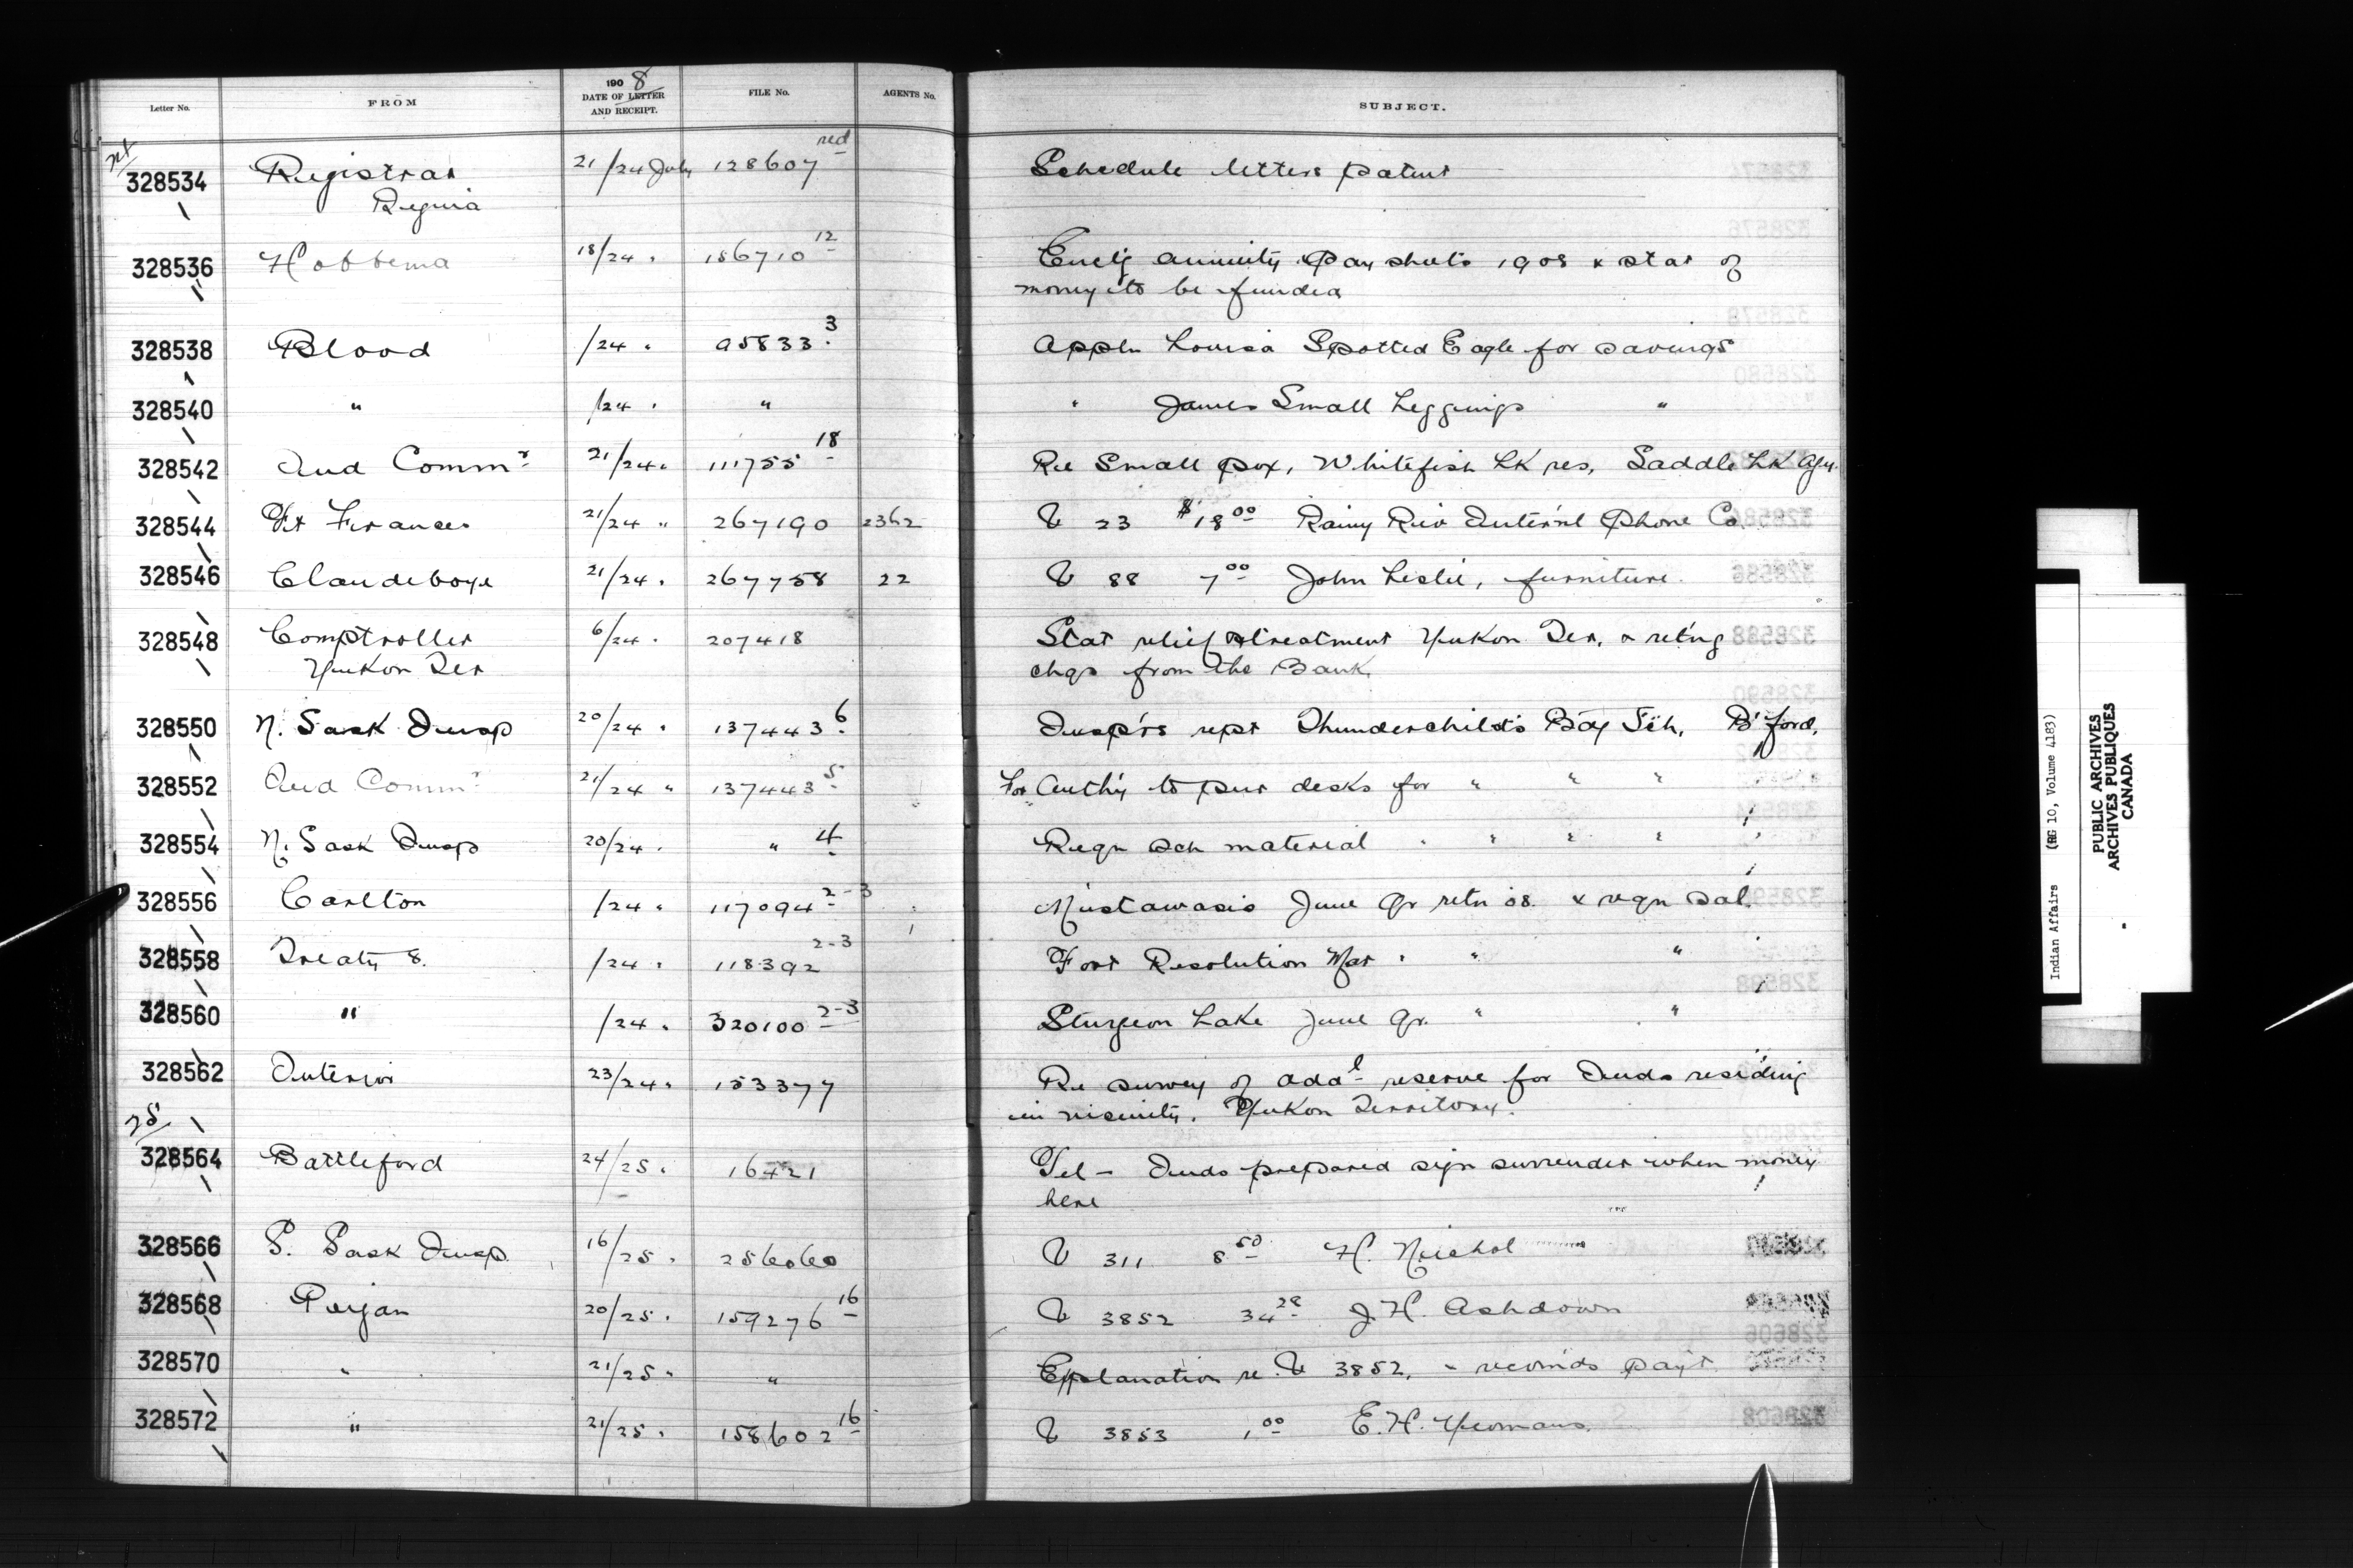 Letter No. FROM 190 8 DATE OF LETTER AND RECEIPT. FILE No. AGENTS No. SUBJECT.
328534 Registrar 21/24 July 128607 red Schedule letters patent
Regina
328536 Hobbema 18/24 " 186710 12 Encl'g annuity pay sheets 1908 & stat of
money to be funded
328538 Blood /24 " 95833 3 Appln Louisa Spotted Eagle for savings
328540 " /24 " " " James Small Leggings "
328542 Ind Commr 21/24 " 111755 18 Re Small pox, Whitefish Lk res, Saddle Lk Agy.
328544 Ft Frances 21/24 " 267190 2362 V 23 $18.00 Rainy Riv Inter'nl Phone Co.
328546 Clandeboye 21/24 " 267758 22 V 88 7.00 John Leslie, furniture.
328548 Comptroller 6/24 " 207418 Stat relief & treatment Yukon Ter. & ret'ng
Yukon Ter chqs from the Bank.
328550 N. Sask Insp 20/24 " 137443 6 Insp'rs rept Thunderchild's Bdy Sch, B'ford.
328552 Ind Commr 21/24 " 137443 5 For Auth'y to pur desks for " " "
328554 N. Sask Insp 20/24 " " 4 Reqn sch material " " " " "
328556 Carlton /24 " 117094 2-3 Mistawasis June Qr retn 08. & reqn sal.
328558 Treaty 8. /24 " 118392 2-3 Fort Resolution Mar " " "
328560 " /24 " 320100 2-3 Sturgeon Lake June Qr. " "
328562 Interior 23/24 " 153377 Re survey of addl reserve for Inds residing
in vicinity. Yukon Territory.
25/
328564 Battleford 24/25 " 16421 Tel - Inds prepared sign surrender when money
here
328566 S. Sask Insp 16/25 " 256060 V 311 8.50 H. Nichol
328568 Perjan 20/25 " 159276 16 V 3852 34.28 J.H. Ashdown
328570 " 21/25 " " Explanation re V 3852, & recom'ds pay't
328572 " 21/25 " 158602 16 V 3853 1.00 E.H. Yeomans.
Indian Affairs (RG 10, Volume 4183)
PUBLIC ARCHIVES
ARCHIVES PUBLIQUES
CANADA